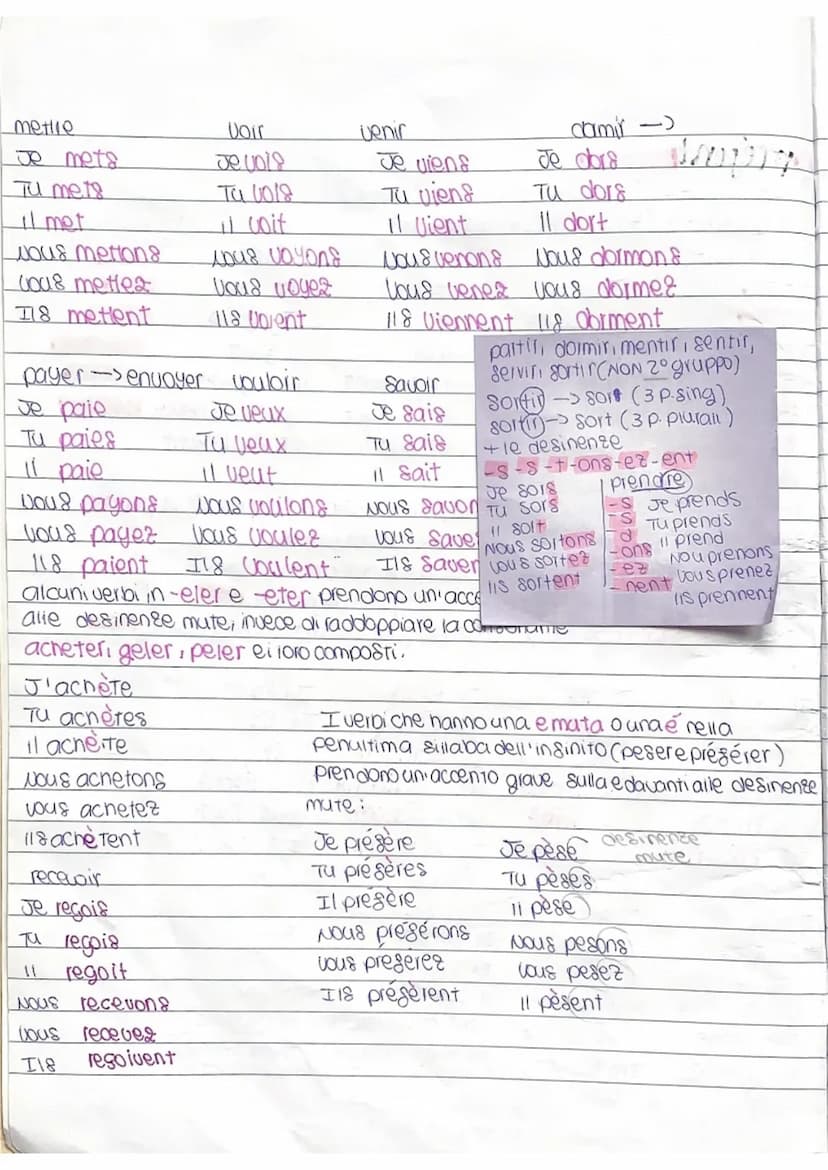 mettre voir venir dormir →
Je mets Je vois Je viens Je dors
Tu mets Tu vois Tu viens Tu dors
Il met il voit il vient il dort
Nous mettons Nous voyons Nous venons Nous dormons
vous mettez Vous voyez Vous venez vous dormez
Ils mettent ils voient ils viennent ils dorment
payer → envoyer vouloir savoir
Je paie Je veux Je sais
Tu paies Tu veux Tu sais
Il paie il veut il sait
Vous payons Nous voulons Nous savon
Vous payez Vous voulez Vous save
Ils paient Ils veulent Ils saven
alcuni verbi in -eler e -eter prendono un'acce
alle desinenze mute, invece di raddoppiare la consonante
acheter, geler, peler e i loro composti.
partir, dormir, mentir, sentir,
servir, sortir (NON 2° gruppo)
sortir → sort (3 p. sing)
sortir → sort (3 p. plurali)
+ le desinenze
-s -s -t -ons -ez -ent
Je sors
Tu sors
il sort
Nous sortons
Vous sortez
ils sortent
prendre
-s Je prends
-s Tu prends
d il prend
-ons Nou prenons
-ez Vous prenez
-nent ils prennent
J'achète
Tu achètes
il achète
Nous achetons
vous achetez
ils achètent
I verbi che hanno una e muta o una é nella
penultima sillaba dell'infinito (peser e préférer)
prendono un'accento grave sulla e davanti alle desinenze
mute:
Je préfère Je pèse desinenze mute
Tu préfères Tu pèses
Il préfère il pèse
Nous préférons Nous pesons
Vous préferez Vous pesez
Ils préfèrent il pèsent
recevoir
Je reçois
Tu reçois
il reçoit
Nous recevons
Vous recevez
Ils reçoivent